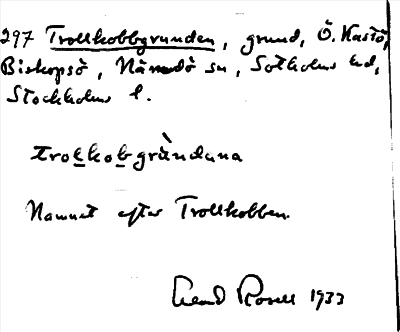 297 Trollkobbgrunden, grund, Ö. Kastö,
Biskopsö, Nämdö sn, Sotholms hd,
Stockholms l.
trolkobgrùndana
Namnet efter Trollkobben.
1933